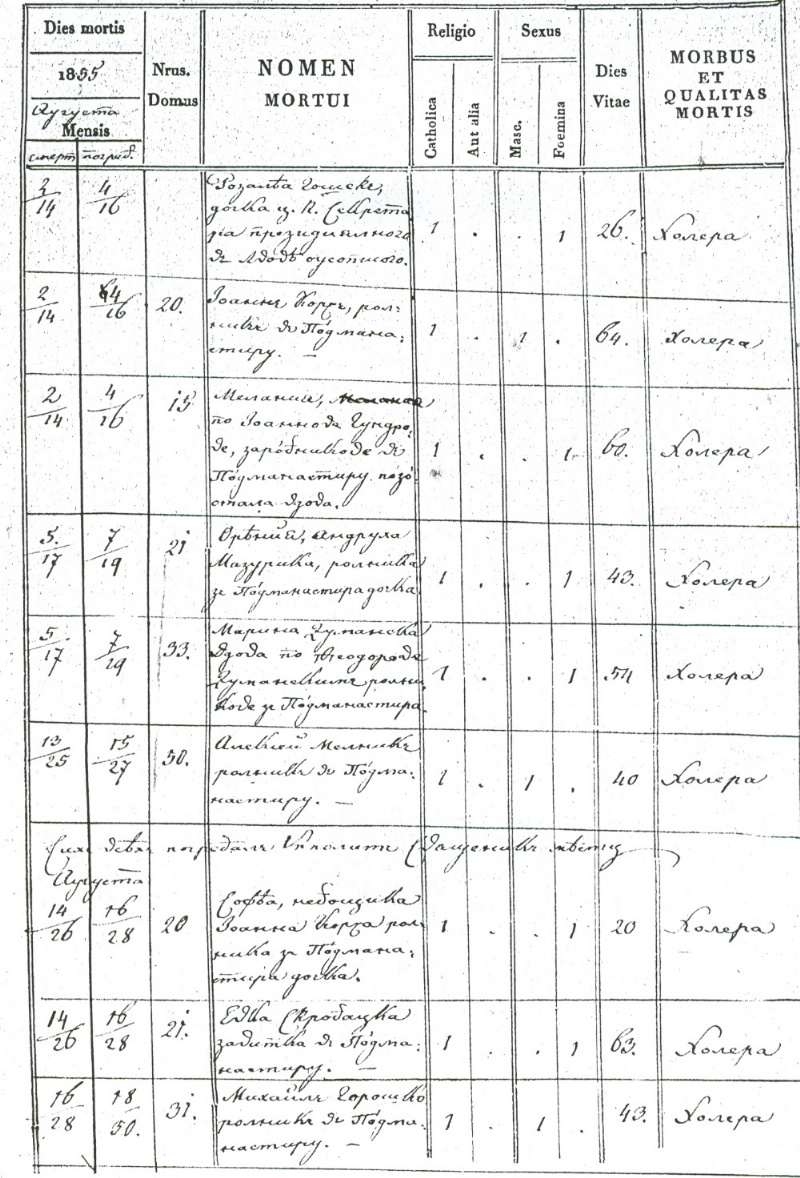 Dies mortis
1855
Аугуста
Mensis
смерт погреб.
Nrus. Domus
NOMEN
MORTUI
Religio
Catholica
Aut alia
Sexus
Masc.
Foemina
Dies
Vitae
MORBUS
ET
QUALITAS
MORTIS
2/14 4/16 Розалѣа
дочка ц. К. Секрета
ріа президиялного
1 . . 1 26. Холера
2/14 4/16 20. Іоаннъ Корга, рол-
никъ въ Пôдмана:
стиру. —
1 . 1 . 64. Холера
2/14 4/16 15 Меланий,
по Іоаннова
заробникове въ
Пôдманастиру позô
стала вдова.
1 . . 1. 60. Холера
5./17 7/19 21 андруха
Мазурика, ролника
зъ Пôдманастира дочка
1 . . 1 43. Холера
5/17 7/19 33. Марина
вдова по Ѳеодорове
ролни
кове зъ Пôдманастира.
1 . . 1 .54 Холера
13/25 15/27 50. Алексій Мелникъ
ролникъ въ Пôдма:
настиру. —
1 . 1 . 40 Холера
погребалъ Ипполитъ Священикъ
Аугуста
14/26 16/28 20 Софѣа, небощика
Іоанна Корга рол
ника зъ Пôдмана:
стира дочка.
1 . . 1 20 Холера
14/26 16/28 21. Евка Скробацка
въ Пôдма:
настиру. —
1 . . 1 63. Холера
16/28 18/30. 31. Михаилъ Горошко
ролникъ въ Пôдма:
настиру. —
1 . 1 . 43. Холера